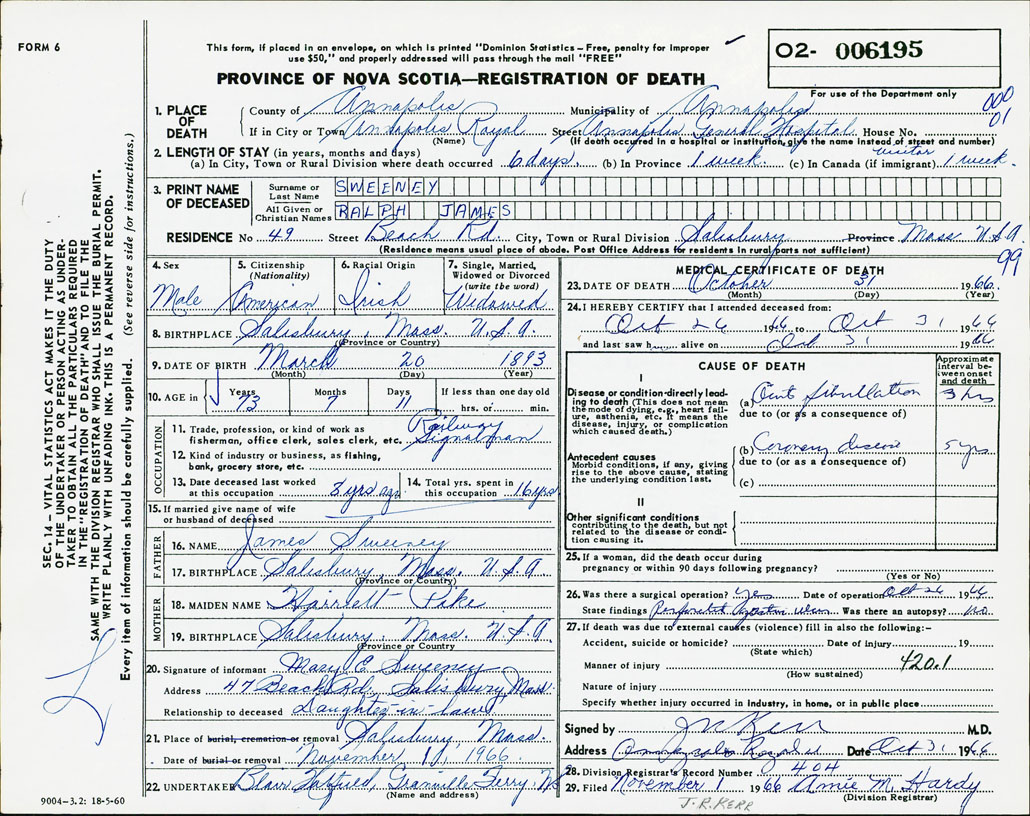 FORM 6
This form, if placed in an envelope, on which is printed "Dominion Statistics – Free, penalty for improper
use $50," and properly addressed will pass through the mail "FREE"
PROVINCE OF NOVA SCOTIA—REGISTRATION OF DEATH
02- 006195
For use of the Department only
000
01
1. PLACE OF DEATH County of Annapolis Municipality of Annapolis
If in City or Town Annapolis Royal Street Annapolis General Hospital House No.
(Name) (If death occurred in a hospital or institution, give the name instead of street and number)
2. LENGTH OF STAY (in years, months and days) visitor
(a) In City, Town or Rural Division where death occurred 6 days. (b) In Province 1 week. (c) In Canada (if immigrant) 1 week.
3. PRINT NAME OF DECEASED
Surname or Last Name SWEENEY
All Given or Christian Names RALPH JAMES
RESIDENCE No 49 Street Beach Rd. City, Town or Rural Division Salisbury Province Mass U.S.A.
(Residence means usual place of abode. Post Office Address for residents in rural parts not sufficient)
99
4. Sex Male
5. Citizenship (Nationality) American
6. Racial Origin Irish
7. Single, Married, Widowed or Divorced (write the word) Widowed
8. BIRTHPLACE Salisbury, Mass. U.S.A.
(Province or Country)
9. DATE OF BIRTH March 20 1893
(Month) (Day) (Year)
10. AGE in Years 73 Months 7 Days 11 If less than one day old hrs. or min.
OCCUPATION
11. Trade, profession, or kind of work as fisherman, office clerk, sales clerk, etc. Railway Signalman
12. Kind of industry or business, as fishing, bank, grocery store, etc.
13. Date deceased last worked at this occupation 8 yrs ago
14. Total yrs. spent in this occupation 16 yrs
15. If married give name of wife or husband of deceased
FATHER
16. NAME James Sweeney
17. BIRTHPLACE Salisbury, Mass. U.S.A
(Province or Country)
MOTHER
18. MAIDEN NAME Harriett Pike
19. BIRTHPLACE Salisbury, Mass. U.S.A.
(Province or Country)
20. Signature of informant Mary E Sweeney
Address 47 Beach Rd. Salisbury, Mass.
Relationship to deceased Daughter-in-law
21. Place of burial, cremation or removal Salisbury, Mass.
Date of burial or removal November 1, 1966
22. UNDERTAKER Blair Granville Ferry, NS
(Name and address)
9004-3.2: 18-5-60
MEDICAL CERTIFICATE OF DEATH
23. DATE OF DEATH October 31 1966
(Month) (Day) (Year)
24. I HEREBY CERTIFY that I attended deceased from:
Oct 26 1966 to Oct 31 1966
and last saw h alive on Oct 31 1966
CAUSE OF DEATH
Approximate interval between onset and death
I
Disease or condition directly leading to death (This does not mean the mode of dying, e.g., heart failure, asthenia, etc. It means the disease, injury, or complication which caused death.)
(a) fibrillation 3 hrs
due to (or as a consequence of)
Antecedent causes
Morbid conditions, if any, giving rise to the above cause, stating the underlying condition last.
(b) Coronary disease 5 yrs
due to (or as a consequence of)
(c)
II
Other significant conditions
contributing to the death, but not related to the disease or condition causing it.
25. If a woman, did the death occur during
pregnancy or within 90 days following pregnancy?
(Yes or No)
26. Was there a surgical operation? Yes Date of operation Oct 26 1966
State findings Perforated Ulcer Was there an autopsy? No
27. If death was due to external causes (violence) fill in also the following:–
Accident, suicide or homicide? Date of injury 19
(State which)
Manner of injury 420.1
(How sustained)
Nature of injury
Specify whether injury occurred in industry, in home, or in public place
Signed by J R Kerr M.D.
Address Annapolis Royal Date Oct 31 1966
28. Division Registrar's Record Number 404
29. Filed November 1 1966 Amie M. Hardy
(Division Registrar)
J.R. KERR
SEC. 14 – VITAL STATISTICS ACT MAKES IT THE DUTY
OF THE UNDERTAKER OR PERSON ACTING AS UNDER-
TAKER TO OBTAIN ALL THE PARTICULARS REQUIRED
IN THE "REGISTRATION OF DEATH" AND TO FILE THE
SAME WITH THE DIVISION REGISTRAR WHO SHALL ISSUE THE BURIAL PERMIT.
WRITE PLAINLY WITH UNFADING INK. THIS IS A PERMANENT RECORD.
Every item of information should be carefully supplied. (See reverse side for instructions.)